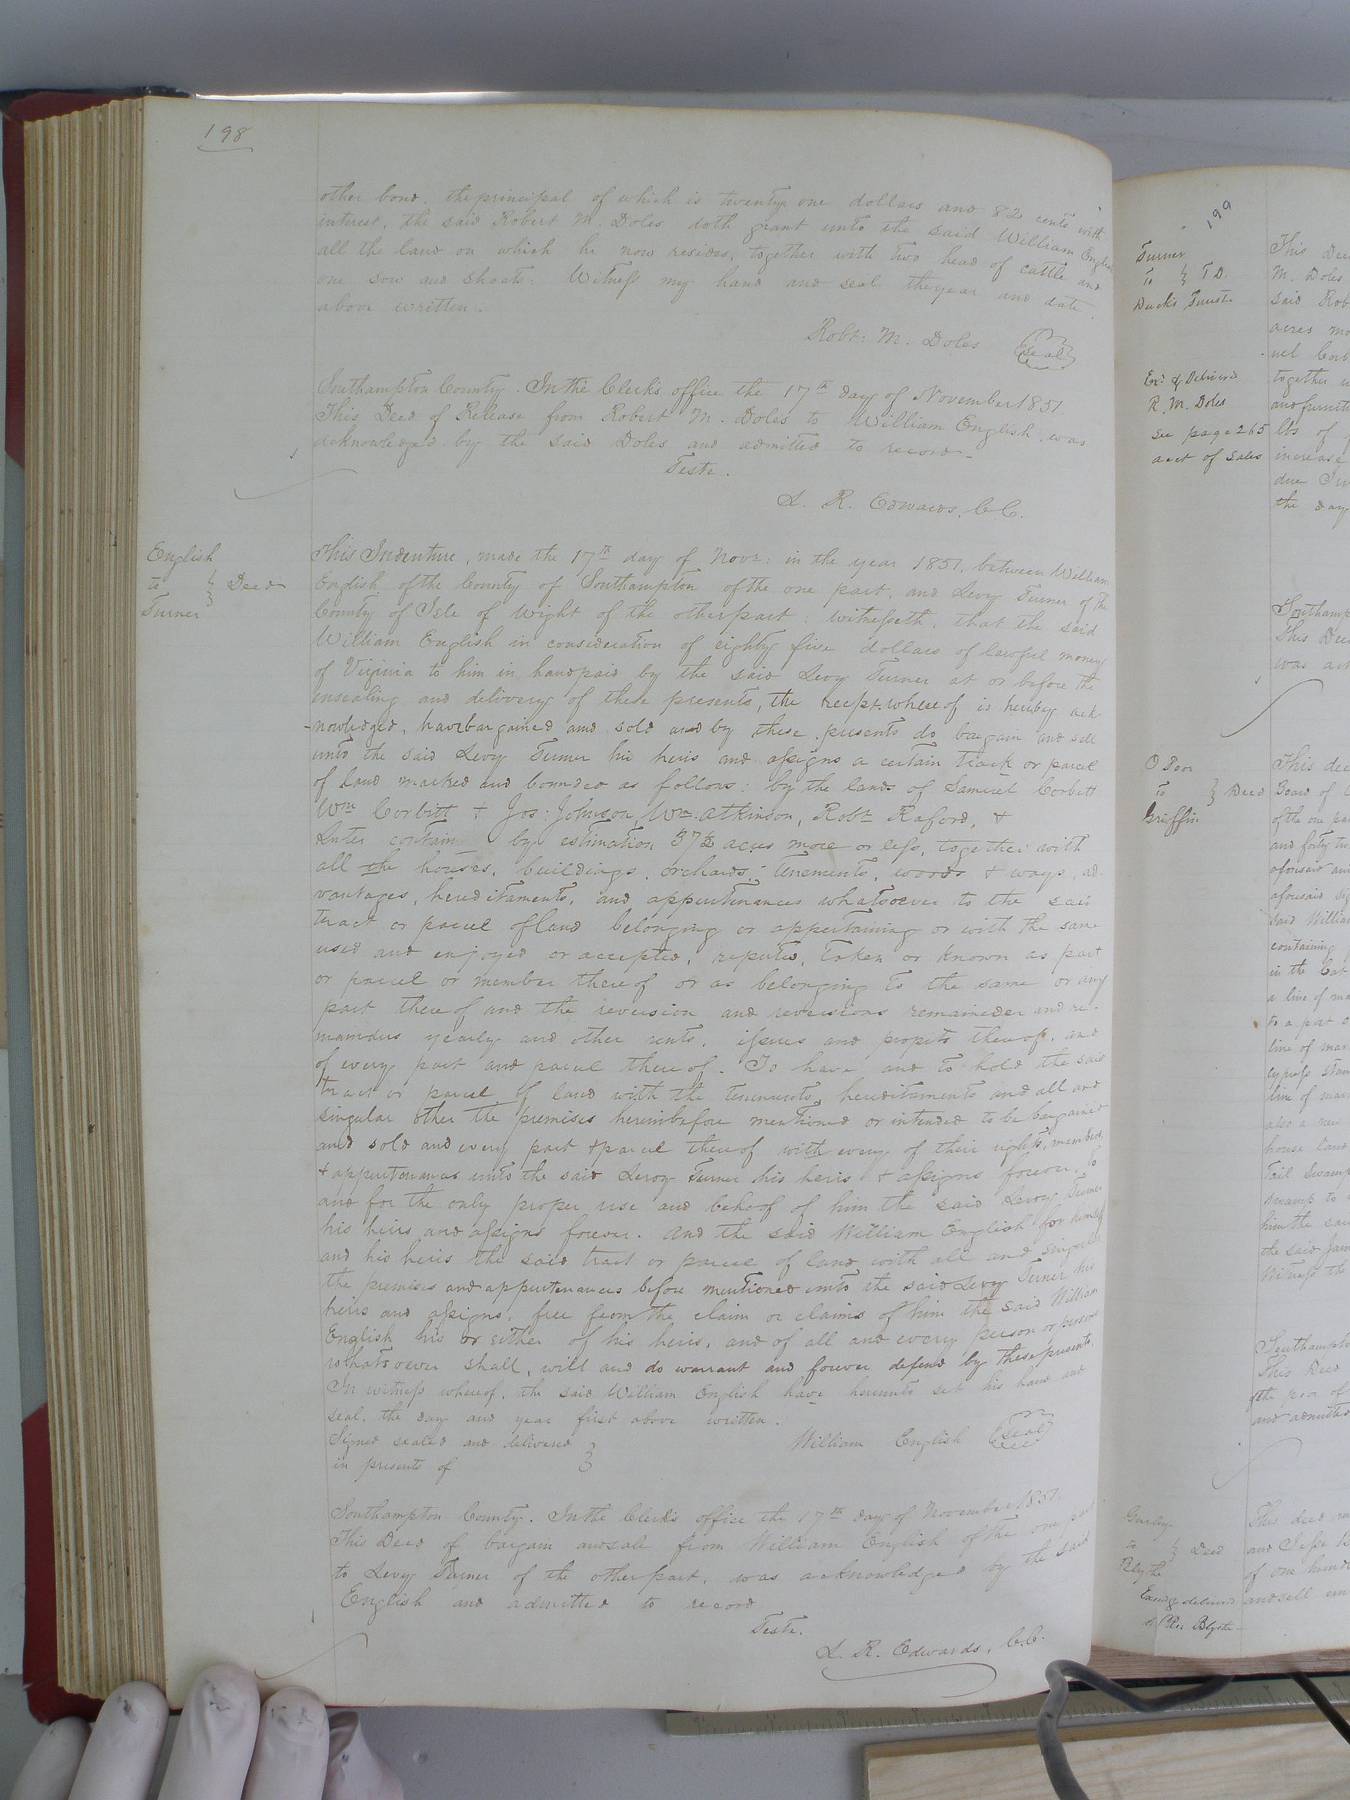 198
other bond. the principal of which is twenty one dollars and 82 cents with
interest, the said Robert M. Doles doth grant unto the said William English
all the land on which he now resides, together with two head of cattle and
one sow and shoats. Witness my hand and seal the year and date
above written.
Robt: M. Doles (Seal)
Southampton County. In the Clerk's office the 17th day of November 1851
This Deed of Release from Robert M. Doles to William English, was
acknowledged by the said Doles and admitted to record-
Teste.
L. R. Edwards, C.C.
English
to } Deed
Turner
This Indenture, made the 17th day of Novr: in the year 1851, between William
English of the County of Southampton of the one part, and Levy Turner of the
County of Isle of Wight of the other part: witnesseth, that the said
William English in consideration of eighty five dollars of lawful money
of Virginia to him in hand paid by the said Levy Turner at or before the
ensealing and delivery of these presents, the receipt whereof is hereby ack-
-nowledged, have bargained and sold and by these presents do bargain and sell
unto the said Levy Turner his heirs and assigns a certain track or parcel
of land marked and bounded as follows: by the lands of Samuel Corbitt
Wm Corbitt + Jos: Johnson, Wm. Atkinson, Robt Raford, +
containg by estimation 37½ acres more or less, together with
all the houses, buildings, orchards, tenements, woods + ways, ad-
vantages, hereditaments, and appurtenances whatsoever to the said
tract or parcel of land belonging or appertaining or with the same
used and enjoyed or accepted, reputed, taken or known as part
or parcel or member thereof or as belonging to the same or any
part thereof and the reversion and reversions remainder and re-
mainders yearly and other rents, issues and profits thereof, and
of every part and parcel thereof. To have and to hold the said
tract or parcel of land with the tenements, hereditaments and all and
singular other the premises hereinbefore mentioned or intended to be bargained
and sold and every part + parcel thereof with every of their rights, members,
+ appurtenances unto the said Levoy Turner his heirs + assigns forever, to
and for the only proper use and behoof of him the said Levoy Turner
his heirs and assigns forever. And the said William English for himself
and his heirs the said tract or parcel of land with all and singular
the premises and appurtenances before mentioned unto the said Levy Turner his
heirs and assigns, free from the claim or claims of him the said William
English his or either of his heirs, and of all and every person or persons
whatsoever shall, will and do warrant and forever defend by these presents.
In witness whereof, the said William English have hereunto set his hand and
seal, the day and year first above written.
Signed sealed and delivered }
in presents of
William English (Seal)
Southampton County. In the Clerk's office the 17th day of November 1851.
This Deed of bargain and sale from William English of the one part
to Levy Turner of the other part, was acknowledged by the said
English and admitted to record
Teste.
L. R. Edwards, C.C.
199
Turner
To } T.D.
Trustee
Exd & Delivered
R. M. Doles
See page 265
acct of sales
This Dee
M. Doles
said Rob
acres mo
together
and furnit
lbs of
increase
the day
Southamp
This Dee
was ack
to } Deed
Griffin
This dee
of the one pa
and forty
aforesaid
said William
containing
in the
a line of ma
to a post
line of mar
cypress stan
line of mar
also a new
house land
swamp to
him the said
the said Jam
Witness the
Southampton
This Deed
and admitted
Gurley
to } Deed
Blythe
This deed
and Jesse B
of one hund
and sell